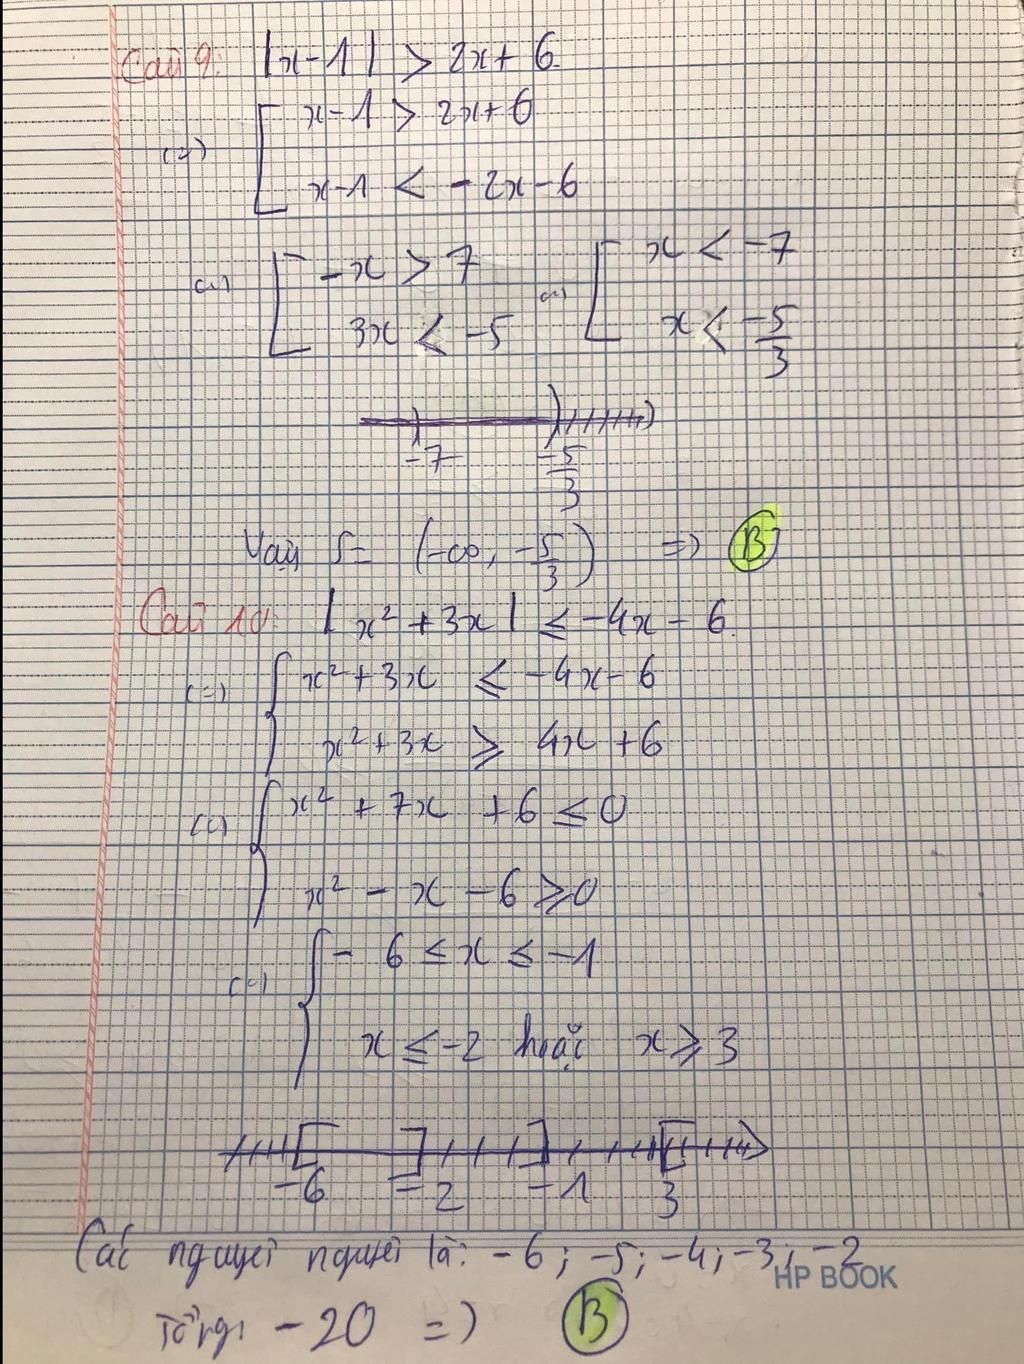 Câu 9: |x-1| > 2x+6.
(=) [ x-1 > 2x+6
x-1 < -2x-6
(=) [ -x > 7 (=) [ x < -7
3x < -5 x < -5/3
-7 -5/3
Vậy S= (-∞, -5/3) => B
Câu 10: |x²+3x| ≤ -4x-6.
(=) { x²+3x ≤ -4x-6
x²+3x ≥ 4x+6
(=) { x²+7x+6 ≤ 0
x²-x-6 ≥ 0
(=) { -6 ≤ x ≤ -1
x ≤ -2 hoặc x ≥ 3
-6 -2 -1 3
Các nguyệt nguyệt là: -6; -5; -4; -3; -2
HP BOOK
Tổng -20 => B